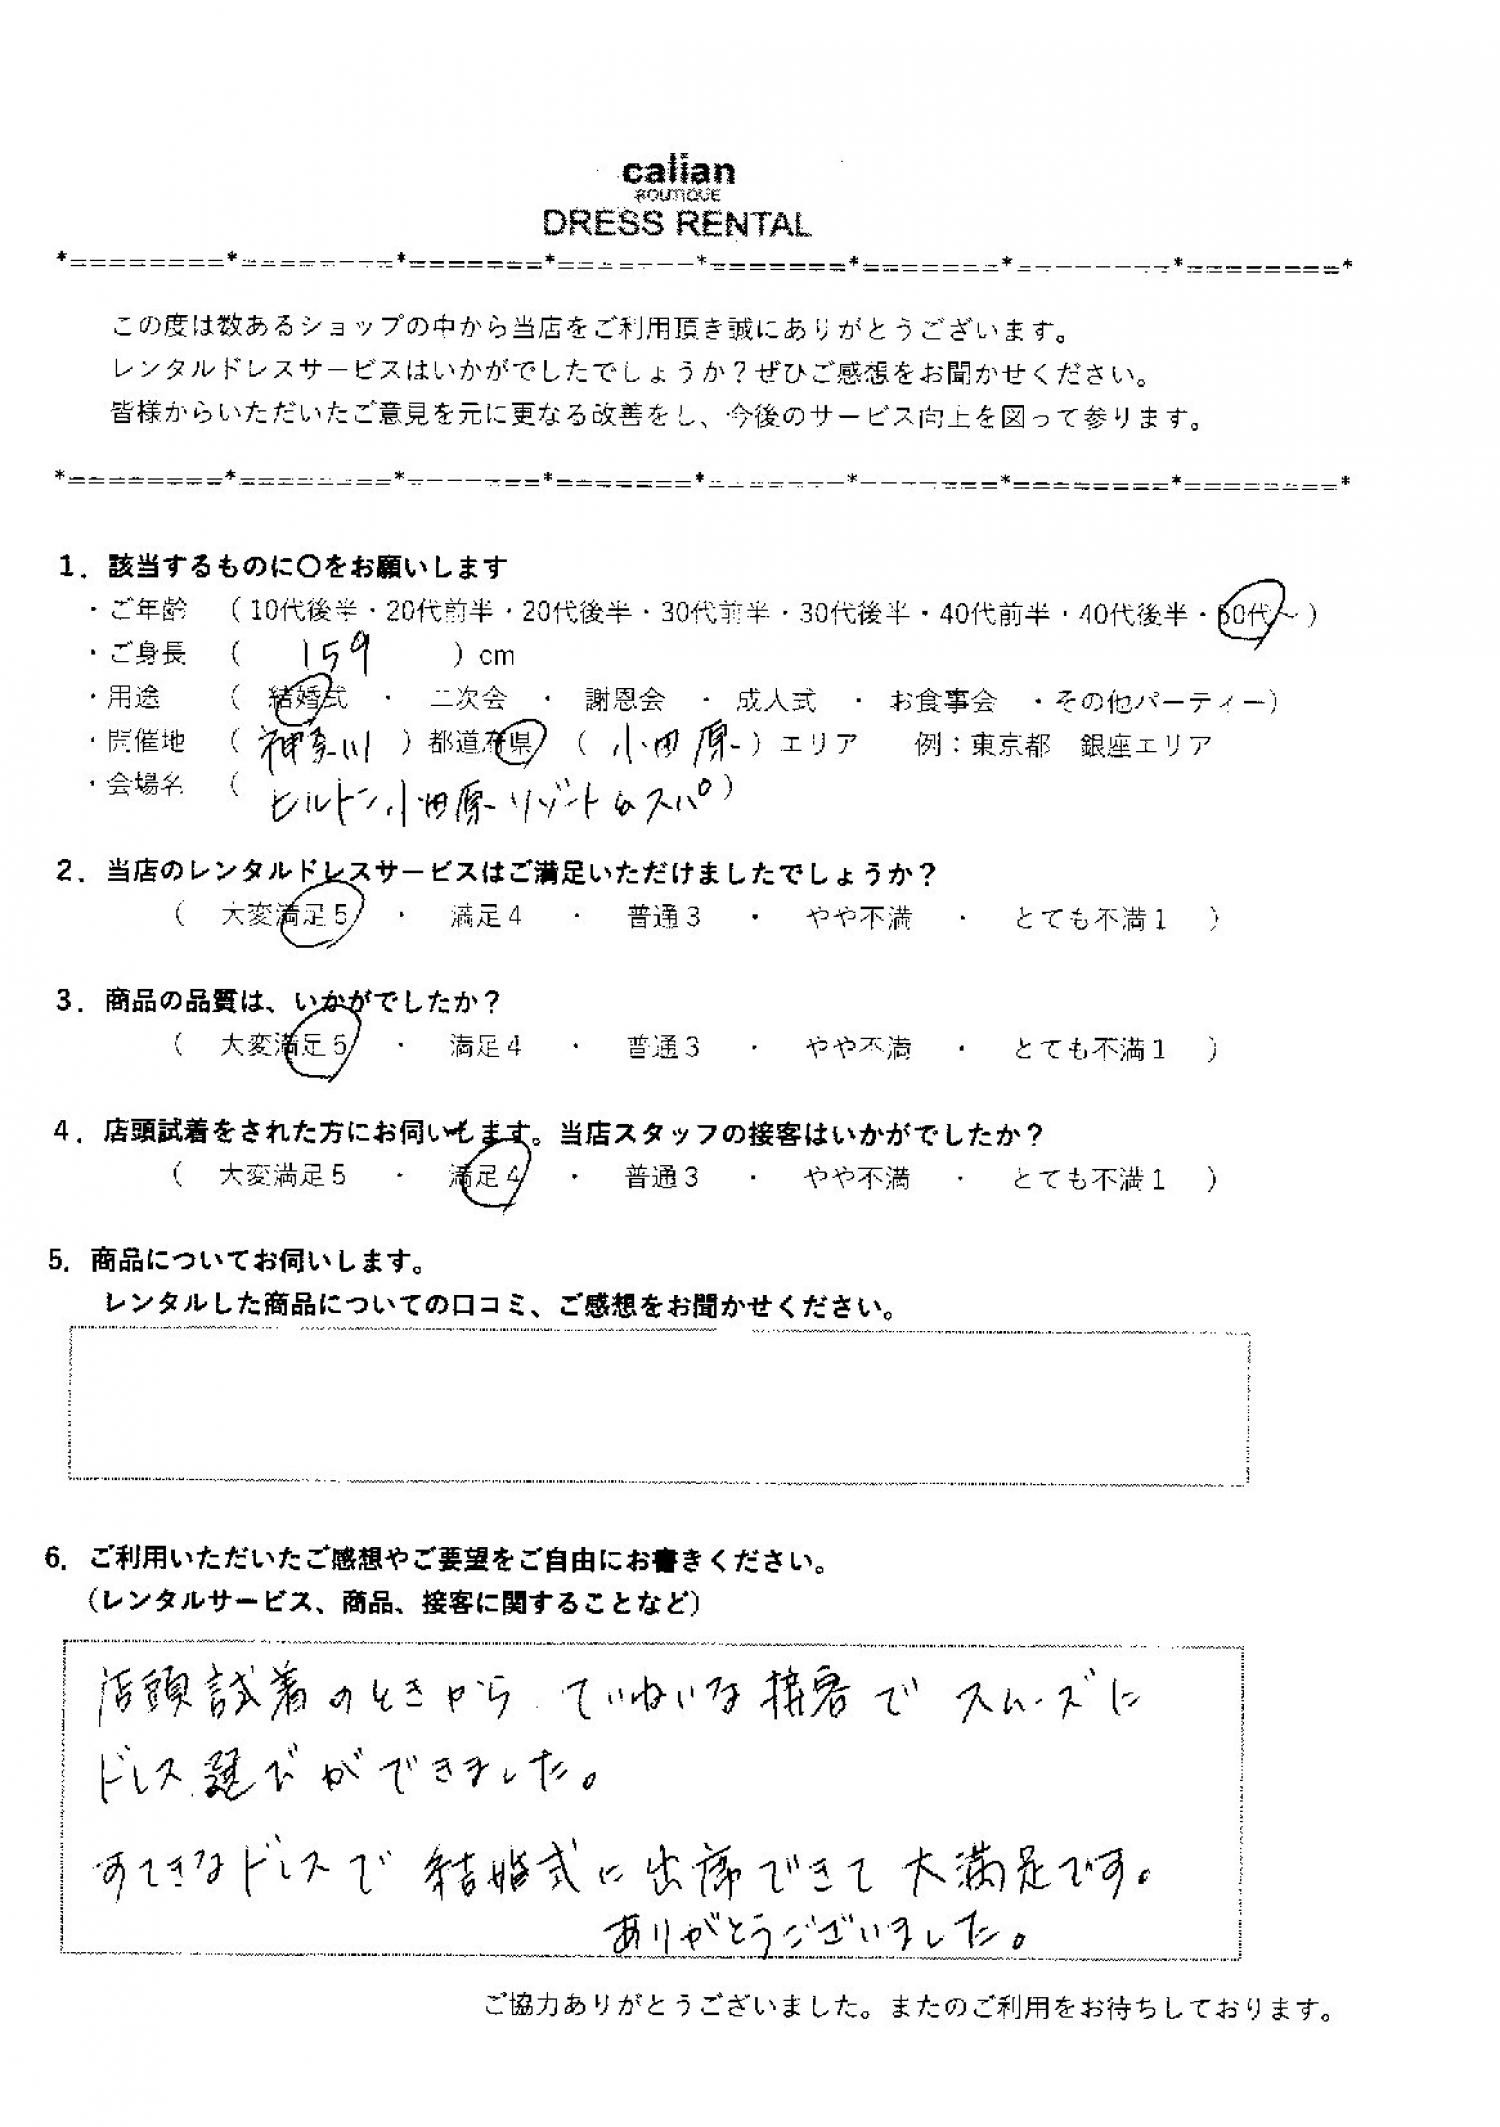 calian
BOUTIQUE
DRESS RENTAL
*========*========*=======*=======*=======*=======*========*========*
この度は数あるショップの中から当店をご利用頂き誠にありがとうございます。
レンタルドレスサービスはいかがでしたでしょうか？ぜひご感想をお聞かせください。
皆様からいただいたご意見を元に更なる改善をし、今後のサービス向上を図って参ります。
*========*========*=======*=======*=======*=======*========*========*
1．該当するものに〇をお願いします
・ご年齢 （10代後半・20代前半・20代後半・30代前半・30代後半・40代前半・40代後半・50代～）
・ご身長 （ 159 ）cm
・用途 （ 結婚式 ・ 二次会 ・ 謝恩会 ・ 成人式 ・ お食事会 ・その他パーティー）
・開催地 （ 神奈川 ）都道府県 （ 小田原 ）エリア 例：東京都 銀座エリア
・会場名 （ ヒルトン小田原リゾート&スパ ）
2．当店のレンタルドレスサービスはご満足いただけましたでしょうか？
（ 大変満足5 ・ 満足4 ・ 普通3 ・ やや不満 ・ とても不満1 ）
3．商品の品質は、いかがでしたか？
（ 大変満足5 ・ 満足4 ・ 普通3 ・ やや不満 ・ とても不満1 ）
4．店頭試着をされた方にお伺いします。当店スタッフの接客はいかがでしたか？
（ 大変満足5 ・ 満足4 ・ 普通3 ・ やや不満 ・ とても不満1 ）
5．商品についてお伺いします。
レンタルした商品についての口コミ、ご感想をお聞かせください。
6．ご利用いただいたご感想やご要望をご自由にお書きください。
（レンタルサービス、商品、接客に関することなど）
店頭試着のときから、ていねいな接客でスムーズに
ドレス選びができました。
すてきなドレスで結婚式に出席できて大満足です。
ありがとうございました。
ご協力ありがとうございました。またのご利用をお待ちしております。